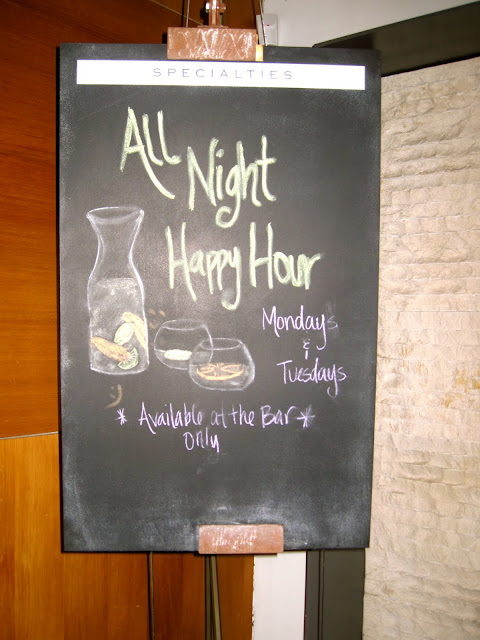 SPECIALTIES
All
Night
Happy Hour
Mondays
&
Tuesdays
* Available at the Bar *
only